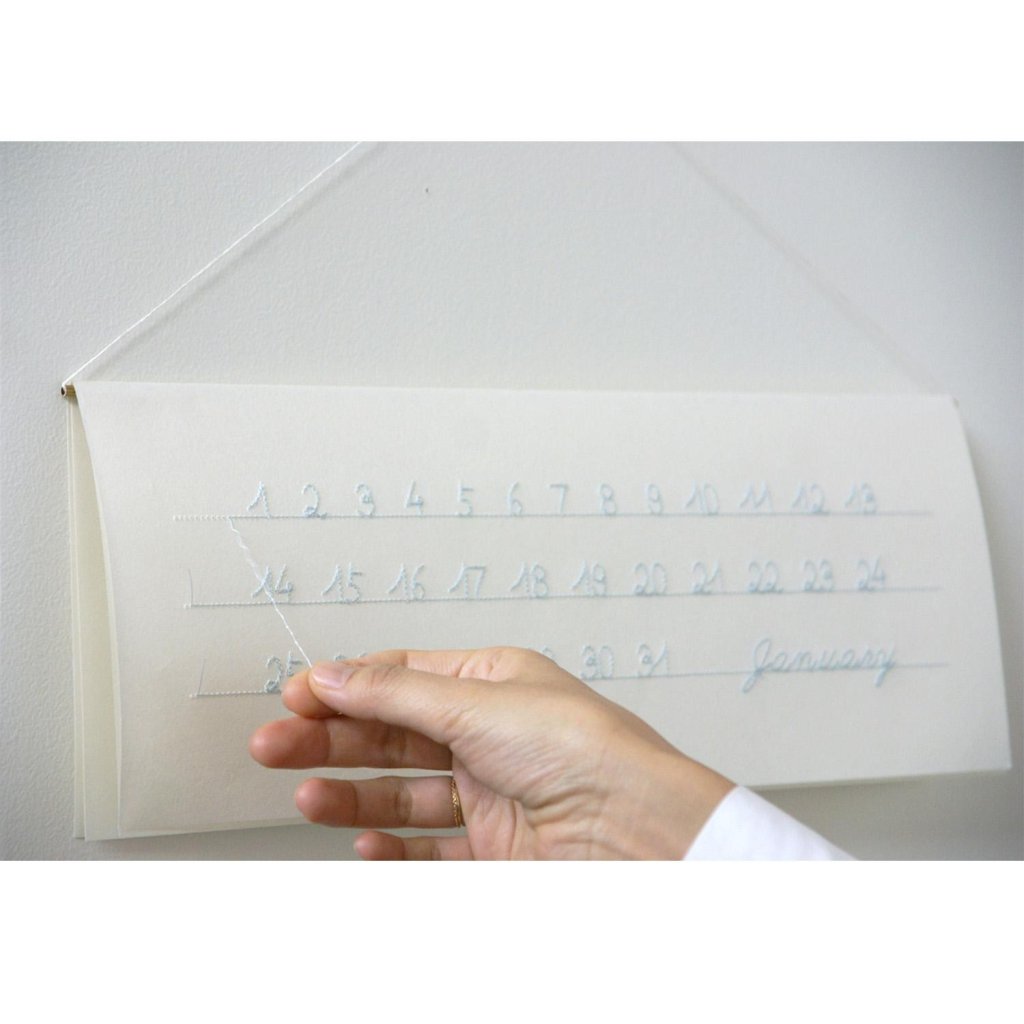 1 2 3 4 5 6 7 8 9 10 11 12 13
14 15 16 17 18 19 20 21 22 23 24
25 30 31 January